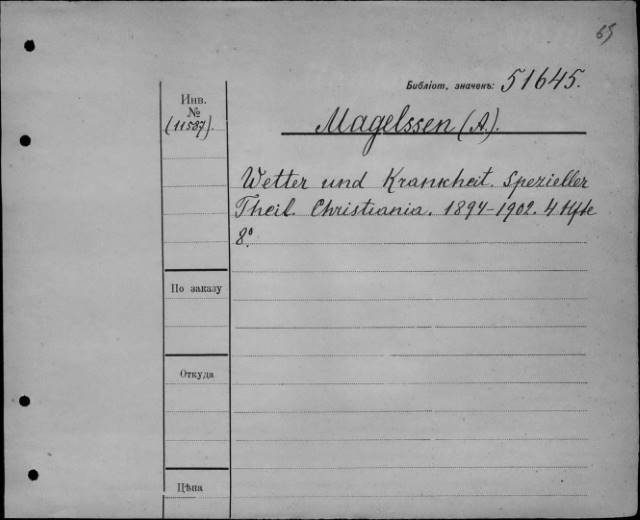 65
Библіот. значенъ: 51645.
Инв.
№
(11587).
Magelssen (A.).
Wetter und Krankheit. Spezieller
Theil. Christiania. 1894-1902. 4 Hfte
8°
По заказу
Откуда
Цѣна